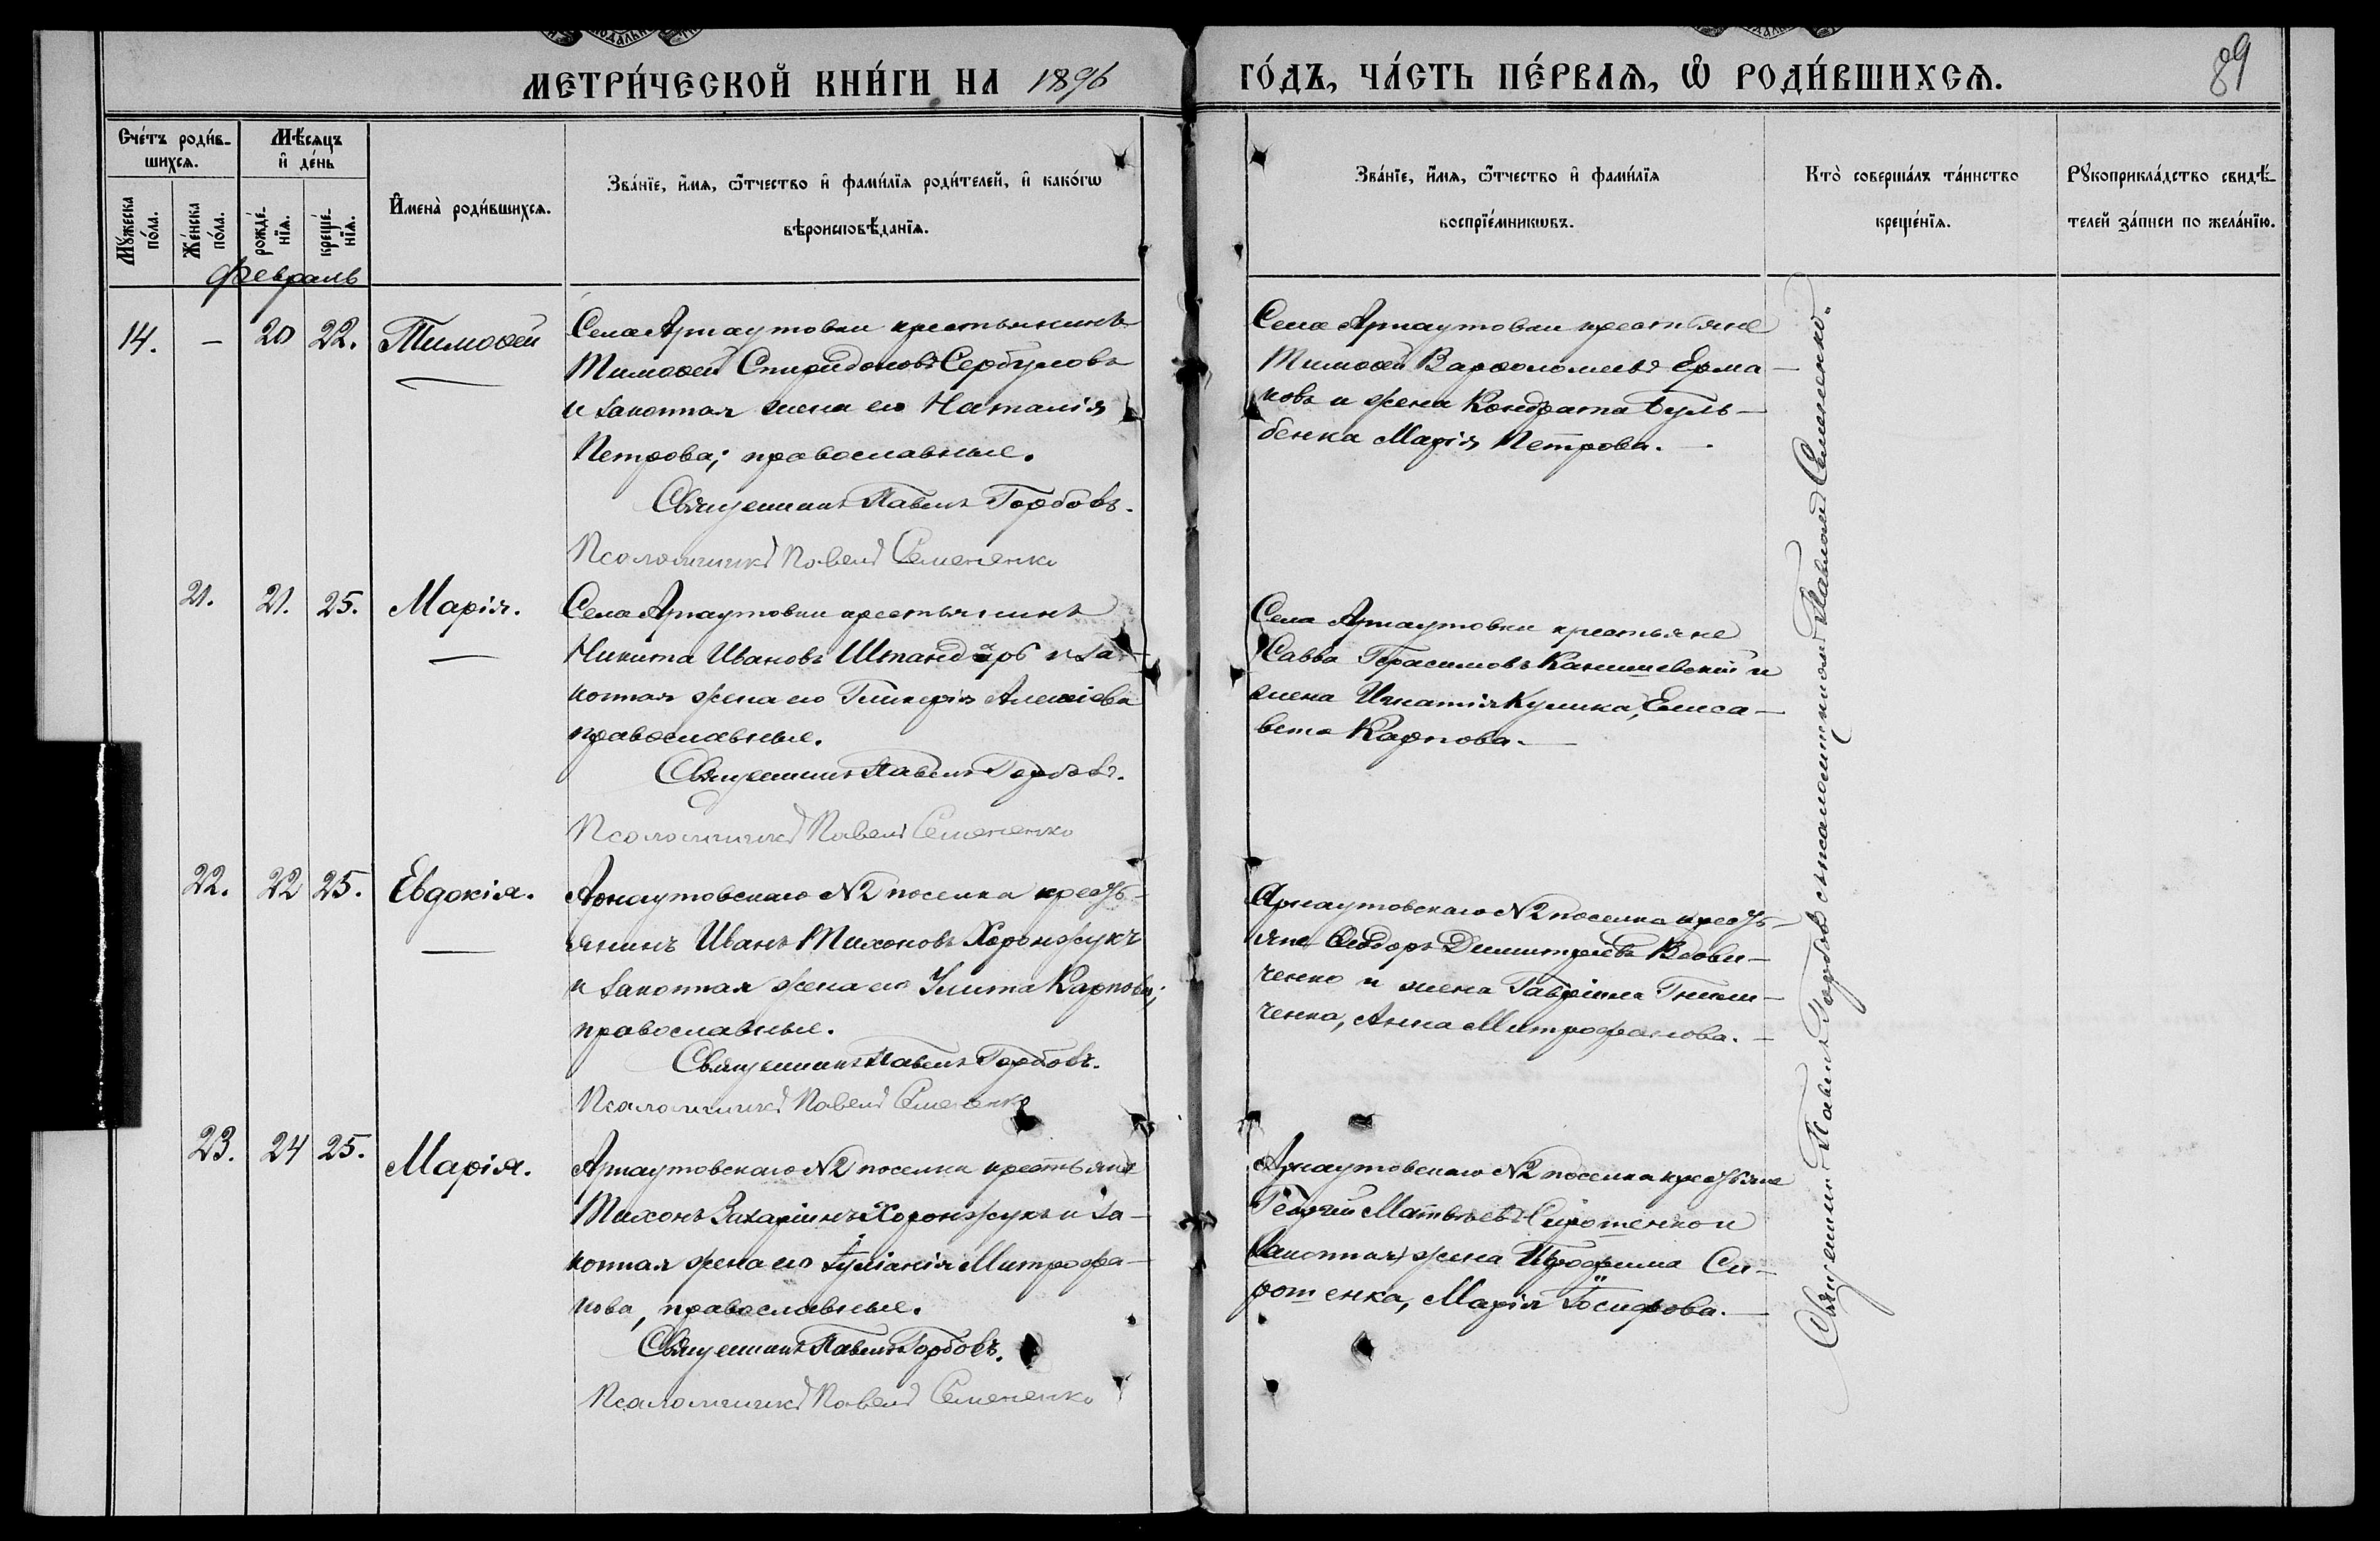 МЕТРИ́ЧЕСКОЙ КНИ́ГИ НА 1896 ГО́ДЪ, ЧА́СТЬ ПЕ́РВАЯ, Ѽ РОДИ́ВШИХСЯ.
89
Сче́тъ роди́вшихся.
Мѣ́сяцъ и҆ де́нь
И҆мена̀ роди́вшихся.
Зва́нїе, и҆́мя, ѻ҆́тчество и҆ фами́лїя роди́телей, и҆ како́гѡ
вѣроисповѣ́данїя.
Зва́нїе, и҆́мя, ѻ҆́тчество и҆ фами́лїя
воспрїе́мникѡвъ.
Кто̀ соверша́лъ та́инство
креще́нїя.
Рꙋкоприкла́дство свидѣ́-
телей за́писи по жела́нїю.
Мꙋ́жеска по́ла.
Же́нска по́ла.
рожде́-нїя.
креще́-нїя.
Февраль
14. — 20 22. Тимоѳей
Села Арнаутовки крестьянинъ
Тимоѳей Спиридоновъ Сербуловъ
и законная жена его Наталія
Петрова; православные.
Священникъ Павелъ Горбовъ.
Псаломщикъ Павелъ Семененко
Села Арнаутовки крестьяне
Тимоѳей Варѳоломеевъ Ерма-
ковъ и жена Кондрата Гуль-
бенка Марія Петрова.
21. 21. 25. Марія.
Села Арнаутовки крестьянинъ
Никита Ивановъ Штандаръ и за-
конная жена его Гликерія Алексіева
православные.
Священникъ Павелъ Горбовъ.
Псаломщикъ Павелъ Семененко
Села Арнаутовки крестьяне
Савва Герасимовъ Канишевскій и
жена Игнатія Кулика, Елиса-
вета Карпова.
22. 22 25. Евдокія.
Арнаутовскаго №2 поселка кресть-
янинъ Иванъ Тихоновъ Хоронжукъ
и законная жена его Улита Карпова;
православные.
Священникъ Павелъ Горбовъ.
Псаломщикъ Павелъ Семененко
Арнаутовскаго №2 поселка кресть-
яне Ѳеодоръ Димитріевъ Вдови-
ченко и жена Гавріила
ченка, Анна Митрофанова.
23. 24 25. Марія.
Арнаутовскаго №2 поселка крестьянинъ
Тихонъ Захаріинъ Хоронжукъ и за-
конная жена его Іуліанія Митрофа-
нова, православные.
Священникъ Павелъ Горбовъ.
Псаломщикъ Павелъ Семененко
Арнаутовскаго №2 поселка крестьяне
Георгій Матвѣевъ Сиротенко и
законная жена Трофима Си-
ротенка, Марія Іосифова.
Священникъ Павелъ Горбовъ съ псаломщикомъ Павломъ Семененко.